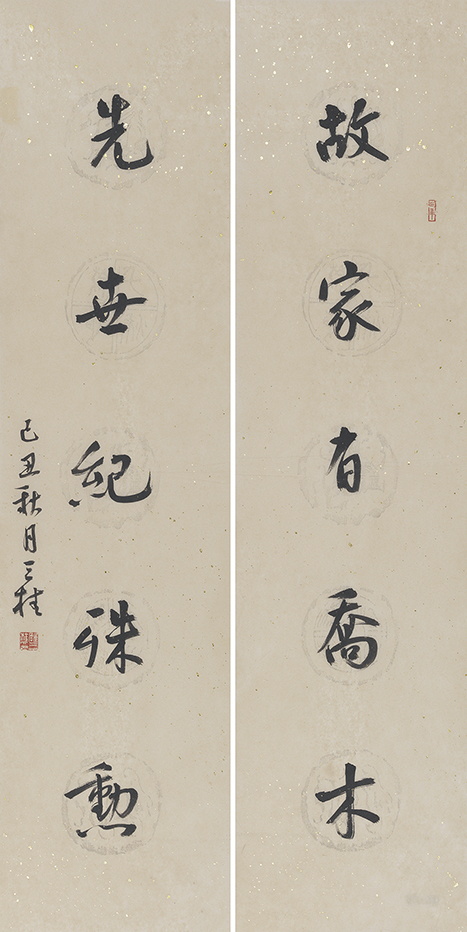 故家有喬木
先世紀殊勳
己丑秋月三桂